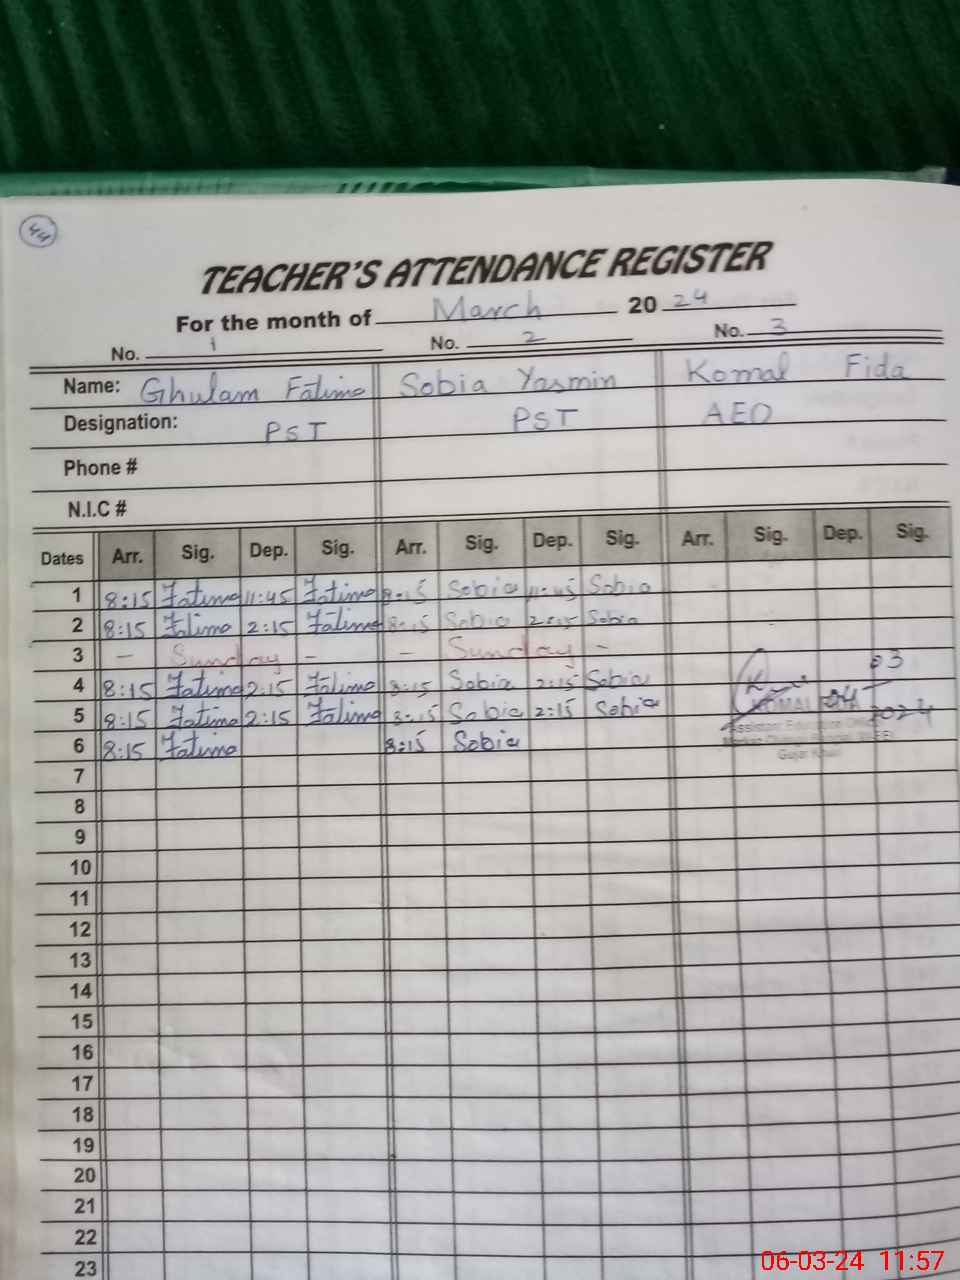 44
TEACHER'S ATTENDANCE REGISTER
For the month of March 2024
No. 1 No. 2 No. 3
Name: Ghulam Fatima Sobia Yasmin Komal Fida
Designation: PST PST AEO
Phone #
N.I.C #
Dates Arr. Sig. Dep. Sig. Arr. Sig. Dep. Sig. Arr. Sig. Dep. Sig.
1 8:15 Fatima 11:45 Fatima 8:15 Sobia 11:45 Sobia
2 8:15 Fatima 2:15 Fatima 8:15 Sobia 2:15 Sobia
3 - Sunday - - Sunday -
4 8:15 Fatima 2:15 Fatima 8:15 Sobia 2:15 Sobia 03
5 8:15 Fatima 2:15 Fatima 8:15 Sobia 2:15 Sobia KOMAL 04 2024
Assistant Education
6 8:15 Fatima 8:15 Sobia
Gujar Khan
7
8
9
10
11
12
13
14
15
16
17
18
19
20
21
22
23
06-03-24 11:57